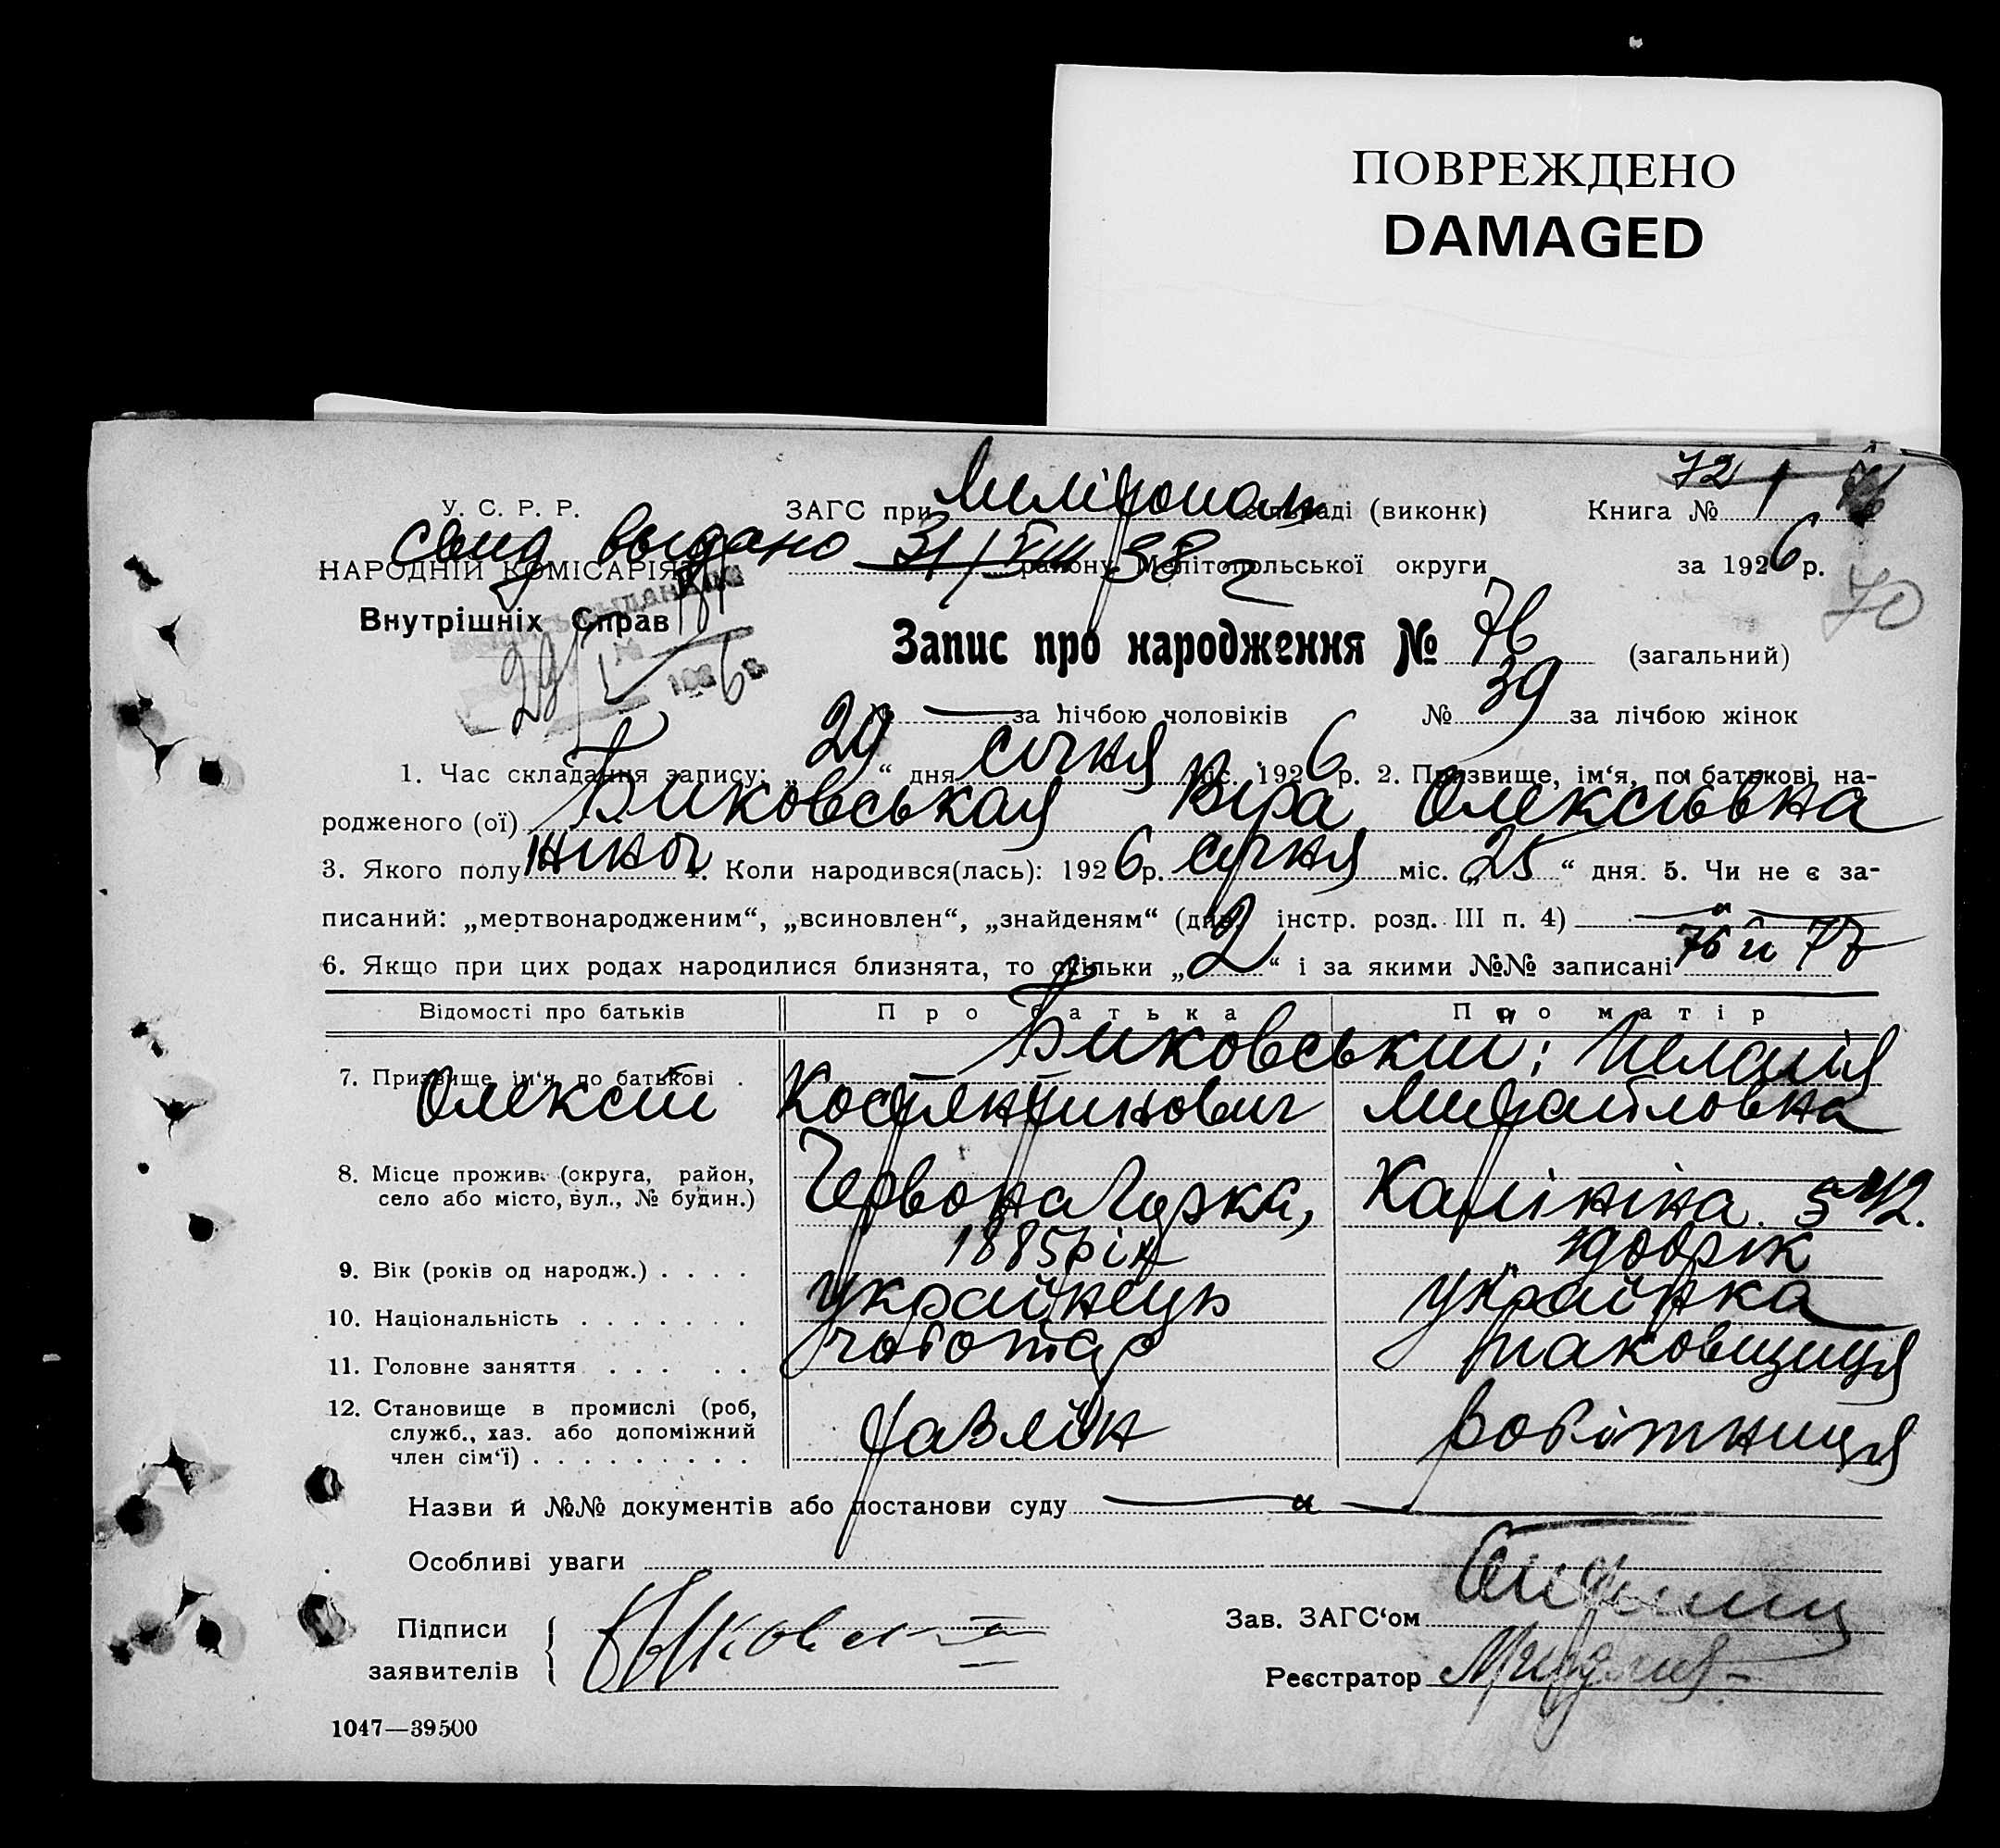 ПОВРЕЖДЕНО
DAMAGED
72
У. С. Р. Р. ЗАГС при Мелітопол раді (виконк) Книга № 1
свид выдано 31/VIII 38 г
НАРОДНІЙ КОМІСАРІЯТ району Мелітопольської округи за 1926 р.
70
Внутрішніх Справ
29/I 1926
Запис про народження № 76 (загальний)
за лічбою чоловіків № 39 за лічбою жінок
1. Час складання запису: „29“ дня січня міс. 1926 р. 2. Призвище, ім‘я, по батькові на-
родженого (ої) Биковськая Віра Олексієвна
3. Якого полу жіноч 4. Коли народився(лась): 1926 р. січня міс. „25“ дня. 5. Чи не є за-
писаний: „мертвонародженим“, „всиновлен“, „знайденям“ (див. інстр. розд. III п. 4)
6. Якщо при цих родах народилися близнята, то скільки „2“ і за якими №№ записані 76 и 77
Відомості про батьків Про батька Про матір
7. Призвище ім‘я, по батькові . Биковський; Пелагія
Олексій Костянтинович Михайловна
8. Місце прожив. (округа, район,
село або місто, вул., № будин.) Червона Гірка, Калініна 542.
9. Вік (років од народж.) . . . . 1885 рік 1900 рік
10. Національність . . . . . . . українець українка
11. Головне заняття . . . . . чоботар паковщиця
12. Становище в промислі (роб,
служб., хаз. або допоміжний
член сім‘ї) . . . . . . . . . хазяїн робітниця
Назви й №№ документів або постанови суду
Особливі уваги
Підписи
заявителів
Зав. ЗАГС‘ом
Реєстратор
1047—39500